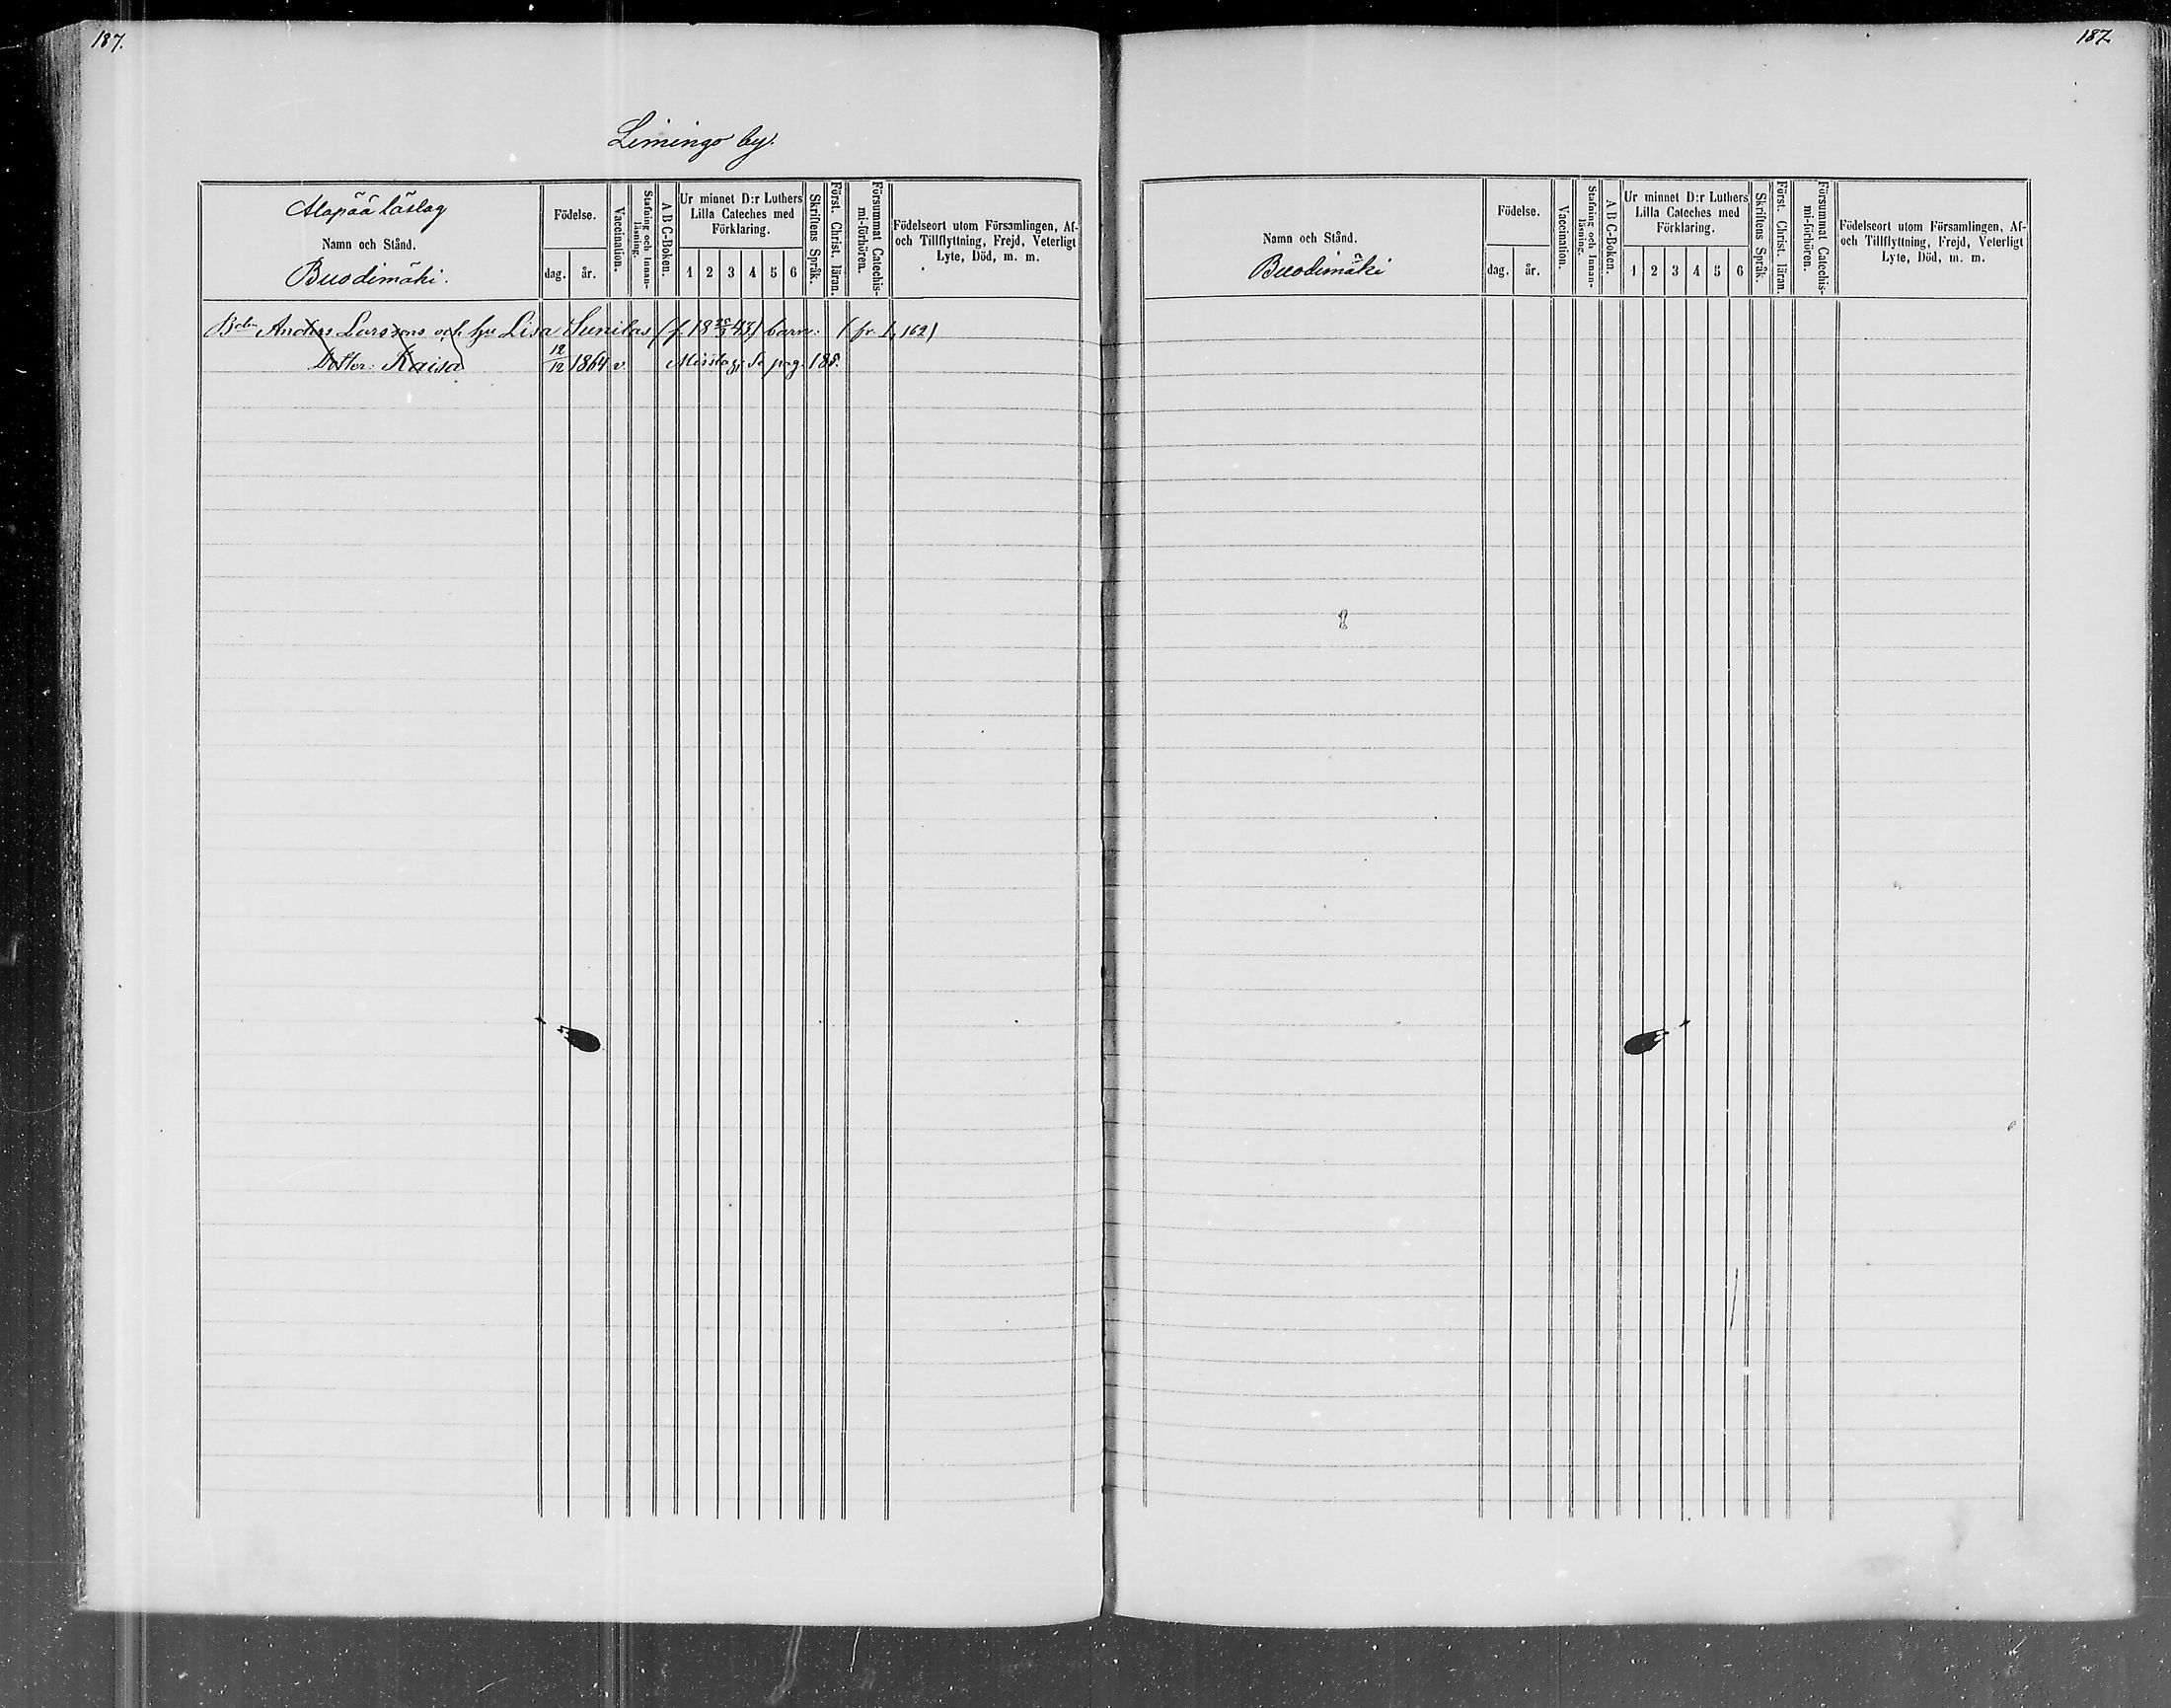 187.
Limingo by.
Alapää läslag
Namn och Stånd.
Buodimäki.
Födelse.
dag. år.
Vaccination.
Stafning och Innan-läsning.
A B C-Boken.
Ur minnet D:r Luthers
Lilla Cateches med
Förklaring.
1 2 3 4 5 6
Skriftens Språk.
Först. Christ. läran.
Försummat Catechis-mi-förhören.
Födelseort utom Församlingen, Af-
och Tillflyttning, Frejd, Veterligt
Lyte, Död, m. m.
Anders Larssons och hu Lisa Sunilas barn: (fr. 1, 162)
Dotter: Kaisa 12/12 1864 v. Misstag; Se pag. 188.
187
Namn och Stånd.
Buodimäki
Födelse.
dag. år.
Vaccination.
Stafning och Innan-läsning.
A B C-Boken.
Ur minnet D:r Luthers
Lilla Cateches med
Förklaring.
1 2 3 4 5 6
Skriftens Språk.
Först. Christ. läran.
Försummat Catechis-mi-förhören.
Födelseort utom Församlingen, Af-
och Tillflyttning, Frejd, Veterligt
Lyte, Död, m. m.